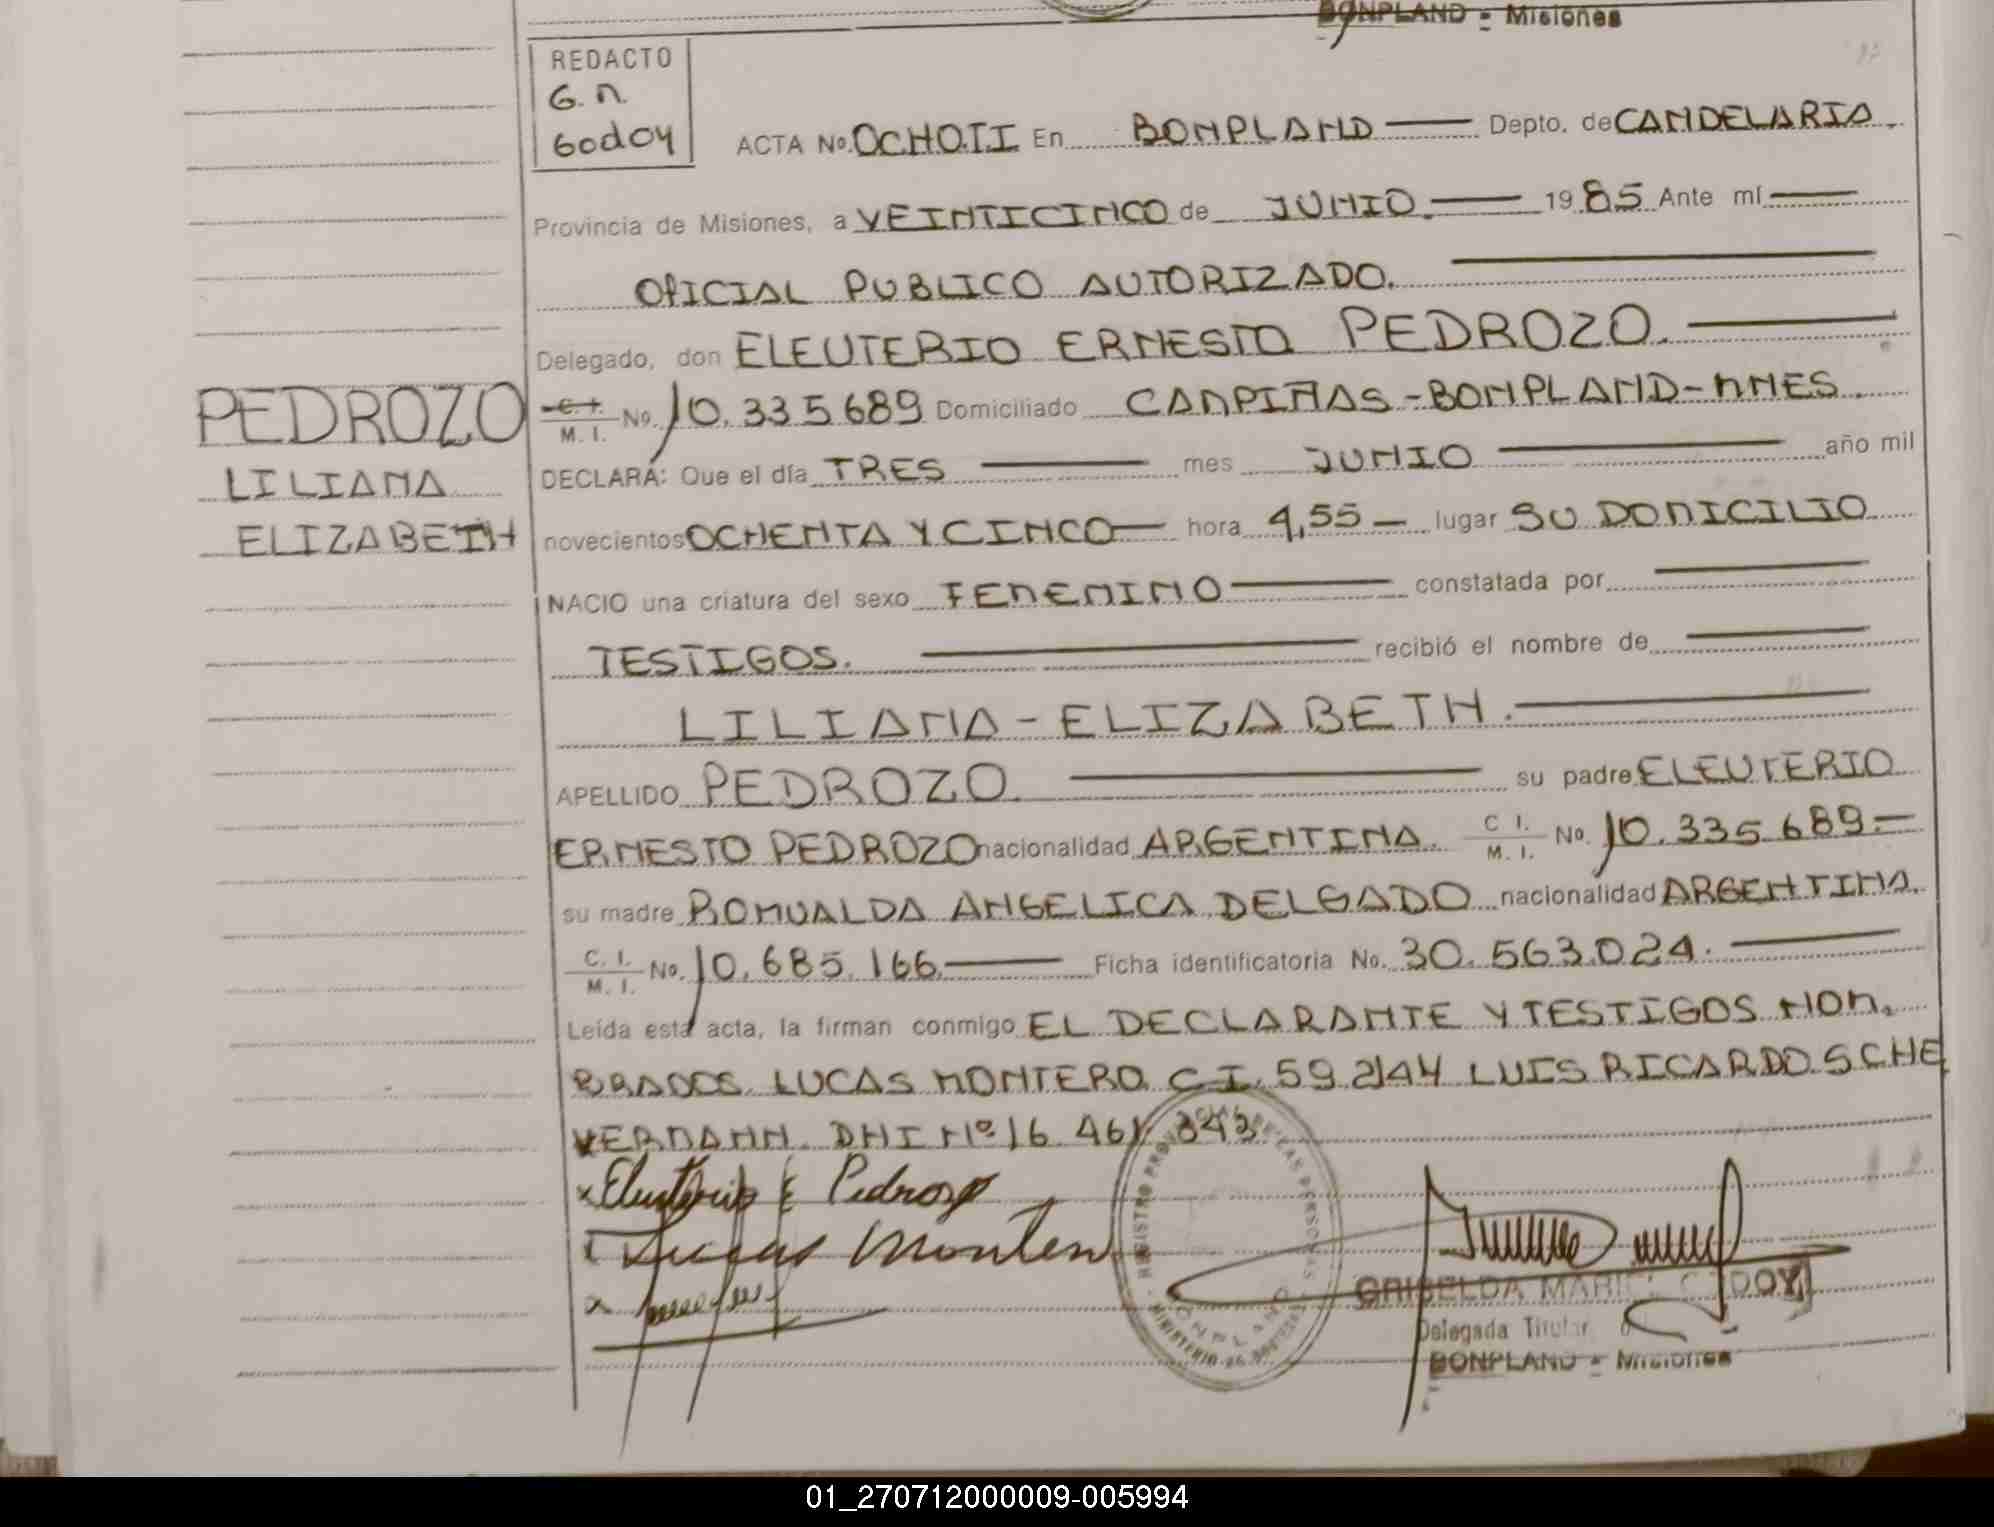 BONPLAND - Misiones
REDACTO
G. M.
Godoy
ACTA No. OCHOTI En BONPLAND Depto. de CANDELARIA.
Provincia de Misiones, a VEINTICINCO de JUNIO. 1985 Ante mí
OFICIAL PUBLICO AUTORIZADO.
Delegado, don ELEUTERIO ERNESTO PEDROZO.
C. I. / M. I. No. 10.335689 Domiciliado CAMPIÑAS-BONPLAND-MNES.
DECLARA: Que el día TRES mes JUNIO año mil
novecientos OCHENTA Y CINCO hora 4,55 lugar SU DOMICILIO
NACIO una criatura del sexo FEMENINO constatada por
TESTIGOS. recibió el nombre de
LILIANA - ELIZABETH.
APELLIDO PEDROZO. su padre ELEUTERIO
ERNESTO PEDROZO nacionalidad ARGENTINA. C I. / M. I. No. 10.335689.-
su madre ROMUALDA ANGELICA DELGADO nacionalidad ARGENTINA.
C. I. / M. I. No. 10.685.166. Ficha identificatoria No. 30.563.024.
Leída esta acta, la firman conmigo EL DECLARANTE Y TESTIGOS NOM.
BRADOS. LUCAS MONTERO. C I. 59.2144 LUIS RICARDO SCHE
VERMANN. DNI Nº 16 461 343
PEDROZO
LILIANA
ELIZABETH
x Eleuterio E Pedrozo
Lucas Montero
REGISTRO PROV. DE LAS PERSONAS
BONPLAND
MINISTERIO DE
GRISELDA MARI GODOY
Delegada Titular
BONPLAND - Misiones
01_270712000009-005994